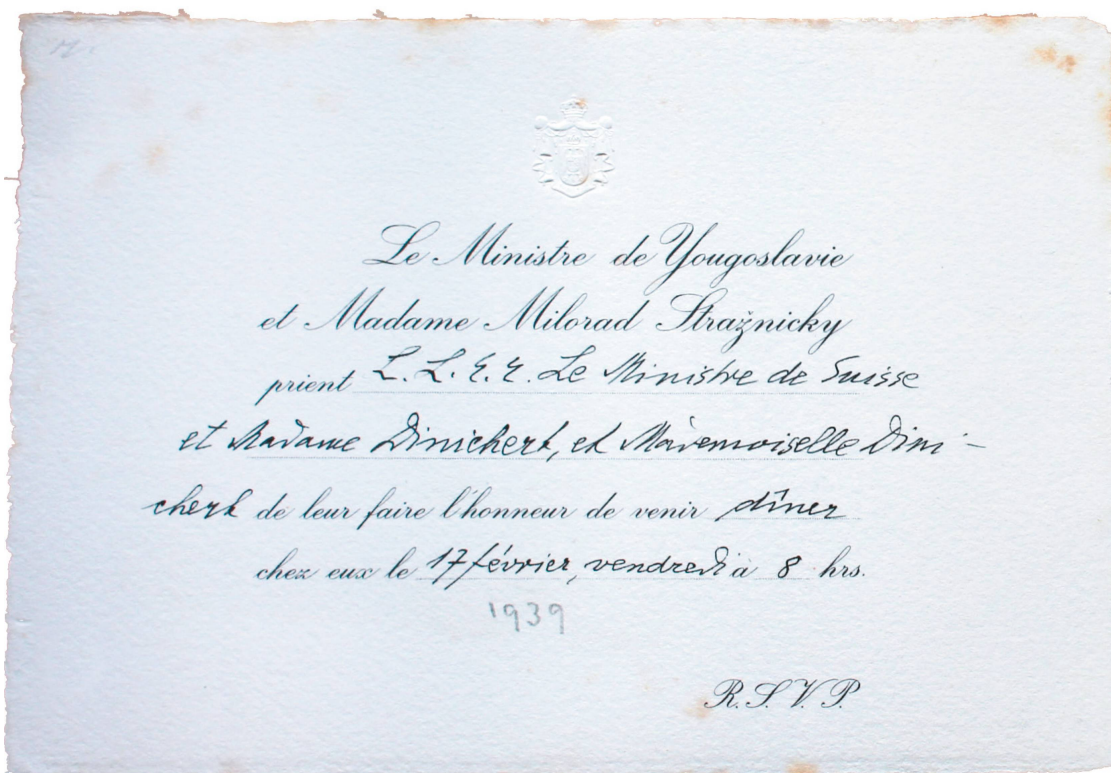 Le Ministre de Yougoslavie
et Madame Milorad Stražnicky
prient L.L.E.E. Le Ministre de Suisse
et Madame Dinichert, et Mademoiselle Dini-
chert de leur faire l'honneur de venir dîner
chez eux le 17 février, vendredi à 8 hrs.
1939
R.S.V.P.